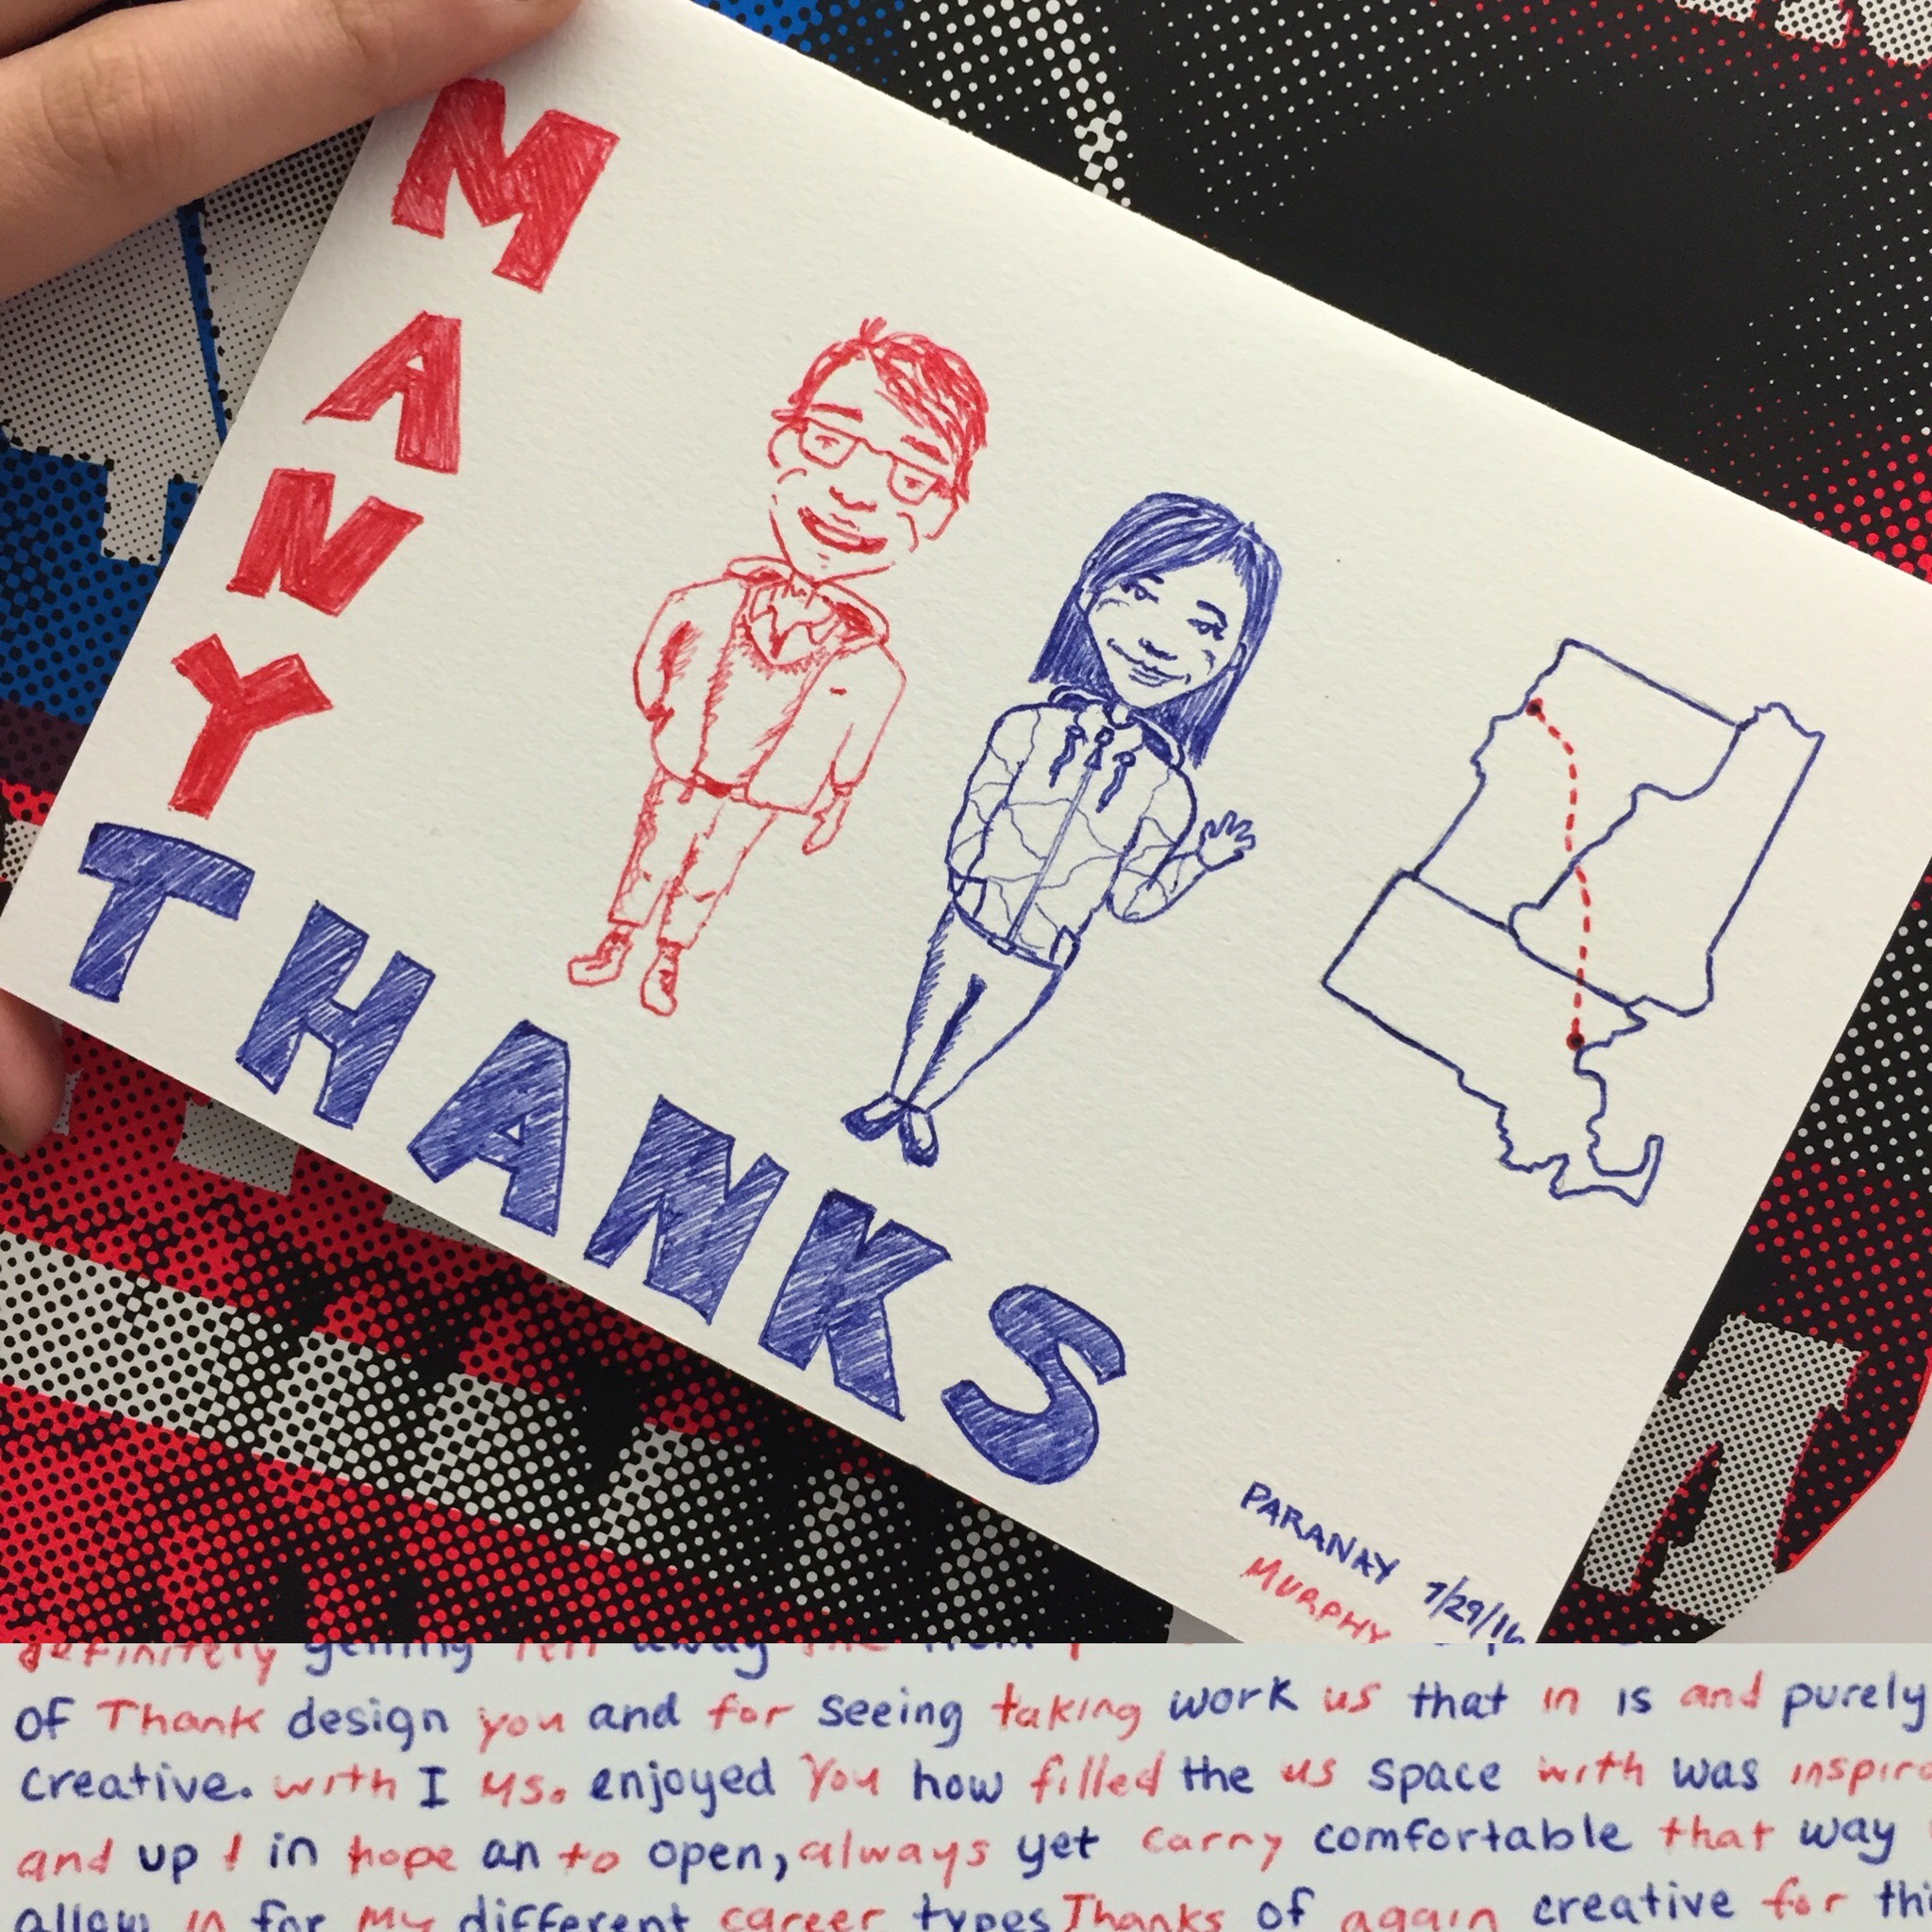 MANY
THANKS
PARANAY 7/29/16
MURPHY
definitely getting
of Thank design you and for seeing taking work us that in is and purely
creative. with I us. enjoyed You how filled the us space with was
and up I in hope an to open, always yet carry comfortable that way
allow in for My different career types Thanks of again creative for